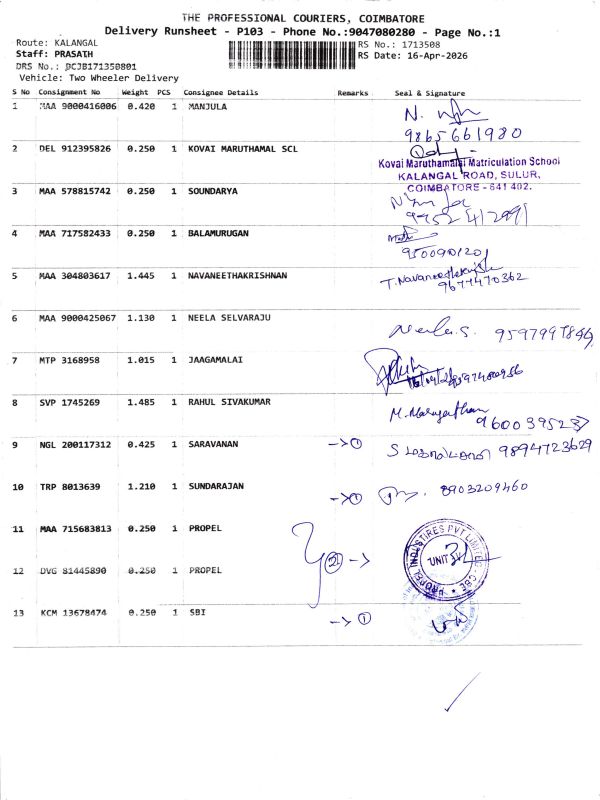 THE PROFESSIONAL COURIERS, COIMBATORE
Delivery Runsheet - P103 - Phone No.:9047080280 - Page No.:1
Route: KALANGAL
RS No.: 1713508
Staff: PRASATH
RS Date: 16-Apr-2026
DRS No.: DCJB171350801
Vehicle: Two Wheeler Delivery
S No Consignment No Weight PCS Consignee Details Remarks Seal & Signature
1 MAA 9000416006 0.420 1 MANJULA
9865661980
2 DEL 912395826 0.250 1 KOVAI MARUTHAMAL SCL
Kovai Maruthamalai Matriculation School
KALANGAL ROAD, SULUR,
COIMBATORE - 641 402.
3 MAA 578815742 0.250 1 SOUNDARYA
4 MAA 717582433 0.250 1 BALAMURUGAN
9500901201
5 MAA 304803617 1.445 1 NAVANEETHAKRISHNAN
T. Navaneethakrishnan
9677470362
6 MAA 9000425067 1.130 1 NEELA SELVARAJU
Neela.S.
7 MTP 3168958 1.015 1 JAAGAMALAI
8 SVP 1745269 1.485 1 RAHUL SIVAKUMAR
9 NGL 200117312 0.425 1 SARAVANAN -> 1 9894723629
10 TRP 8013639 1.210 1 SUNDARAJAN -> 1 8903209460
11 MAA 715683813 0.250 1 PROPEL
2 ->
PROPEL INDUSTIRES PVT LIMITED - CBE
UNIT IV
12 DVG 81445890 0.250 1 PROPEL
13 KCM 13678474 0.250 1 SBI -> 1